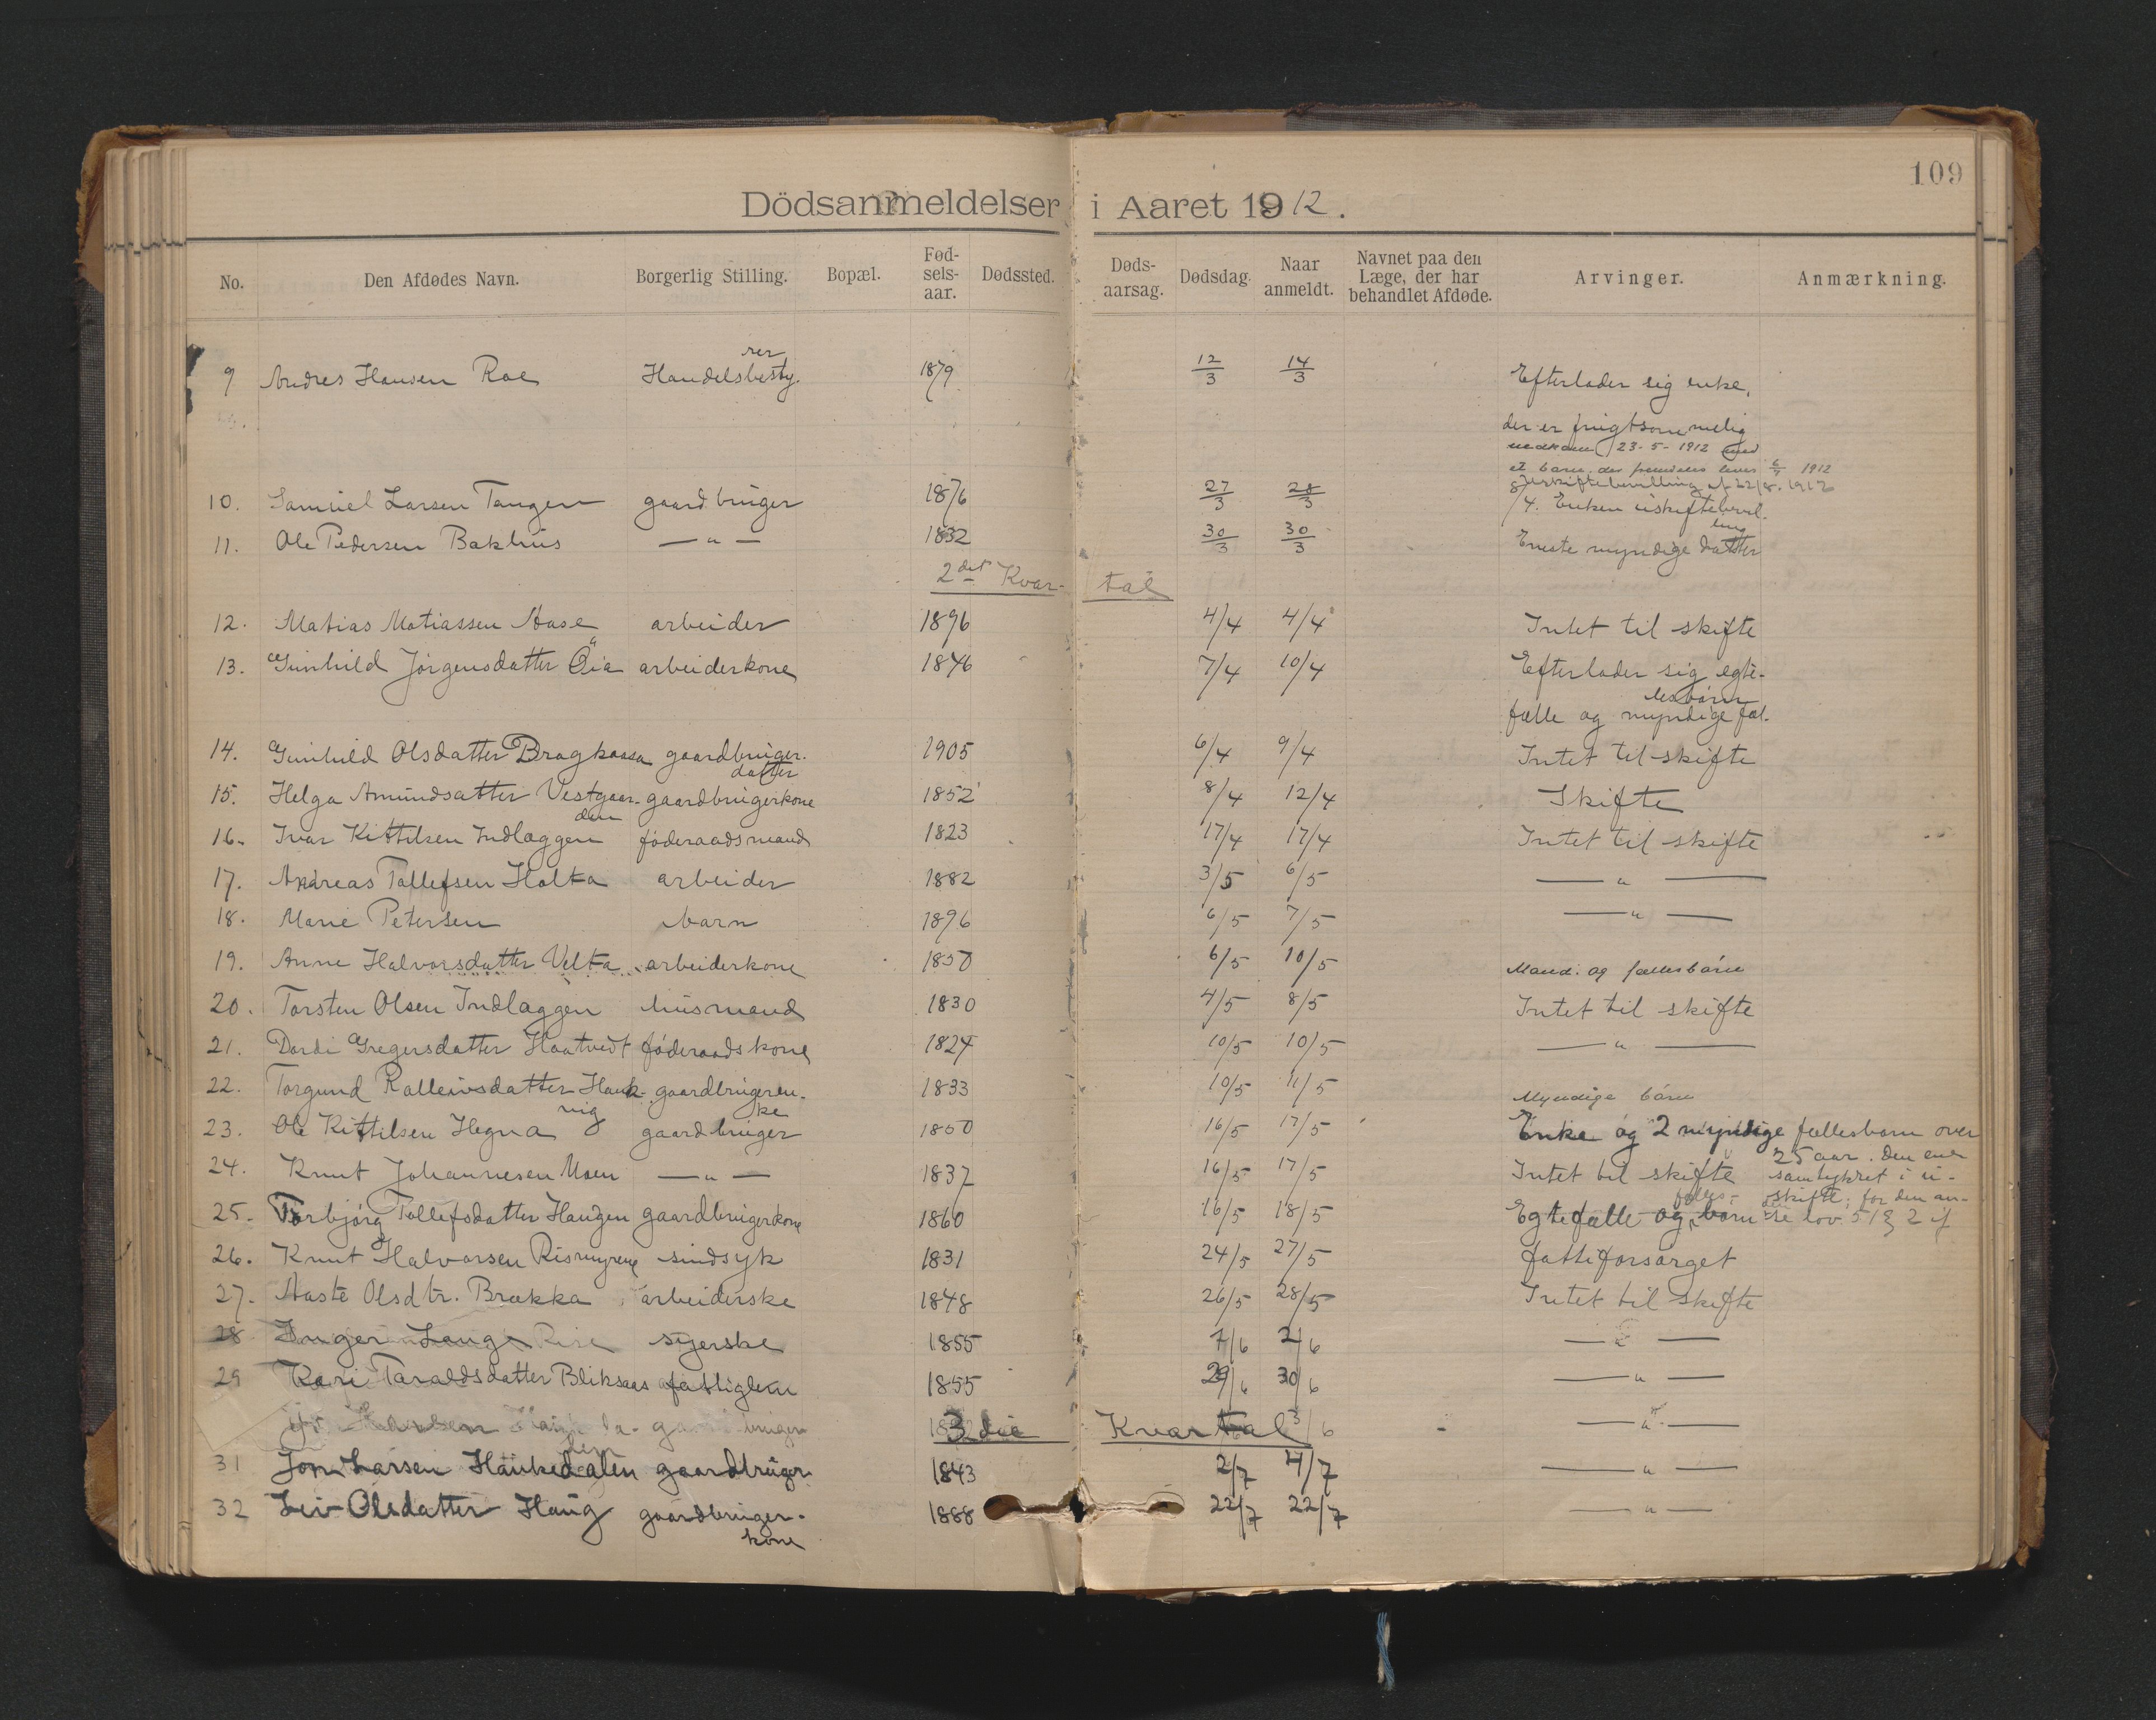 109
Dödsanmeldelser i Aaret 1912.
No. Den Afdødes Navn. Borgerlig Stilling. Bopæl. Fød-sels-aar. Dødssted. Døds-aarsag. Dødsdag. Naar anmeldt. Navnet paa den Læge, der har behandlet Afdøde. Arvinger. Anmærkning.
9 Andres Hansen Roe Handelsbesty.rer 1879 12/3 14/3 Efterlader sig enke,
der er frugtsommelig
23-5-1912
et barn, der 1912
10. Samuel Larsen Tangen gaardbruger 1876 27/3 28/3 Enken uskiftebevil-ling
11. Ole Pedersen Bakhus —"— 1832 30/3 30/3 Eneste myndige datter
2det Kvar-tal
12. Matias Matiassen Aase arbeider 1896 4/4 4/4 Intet til skifte
13. Gunhild Jørgensdatter Øia arbeiderkone 1846 7/4 10/4 Efterlader sig egte-
fælle og myndige fæl-lesbørn
14. Gunhild Olsdatter Bragkaasa gaardbruger-datter 1905 6/4 9/4 Intet til skifte
15. Helga Amundsatter Vestgaar-den gaardbrugerkone 1852 8/4 12/4 Skifte
16. Ivar Kittilsen Indlæggen føderaadsmand 1823 17/4 17/4 Intet til skifte
17. Andreas Tollefsen Holta arbeider 1882 3/5 6/5 —"—
18. Marie Petersen barn 1896 6/5 7/5 —"—
19. Anne Halvorsdatter Velta arbeiderkone 1850 6/5 10/5 Mand og fællesbørn
20. Torsten Olsen Indlæggen husmand 1830 4/5 8/5 Intet til skifte
21. Dordi Gregersdatter Haatvedt føderaadskone 1824 10/5 10/5 —"—
22. Torgund Rolleivsdatter Hauk-vig gaardbrugeren-ke 1833 10/5 11/5 Myndige børn
23. Ole Kittilsen Hegna gaardbruger 1850 16/5 17/5 Enke og 2 myndige fællesbarn over
25 aar. Den ene
24. Knut Johannesen Moen —"— 1837 16/5 17/5 Intet til skifte samtykket i u-
skifte; for den an-
25. Torbjørg Tollefsdatter Haugen gaardbrugerkone 1860 16/5 18/5 Egtefælle og fælles-børn se lov
26. Knut Halvorsen Rismyrene sindsyk 1831 24/5 27/5 fattiforsørget
27. Aaste Olsdtr. Brækka arbeiderske 1848 26/5 28/5 Intet til skifte
28 Inger Lauga Rise syerske 1855 7/6 2/6 —"—
29 Kari Taraldsdatter Bliksaas fattiglem 1855 29/6 30/6 —"—
3die Kvartal —"—
31 Jon Larsen Haukedalen gaardbruger 1843 2/7 4/7 —"—
32 Liv Olsdatter Haug gaardbruger-kone 1888 22/7 22/7 —"—